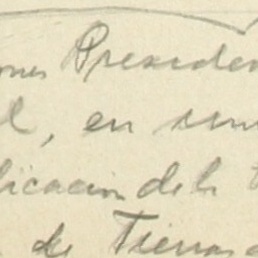 ones Presiden
l, en sen
licación de la
de Tierras